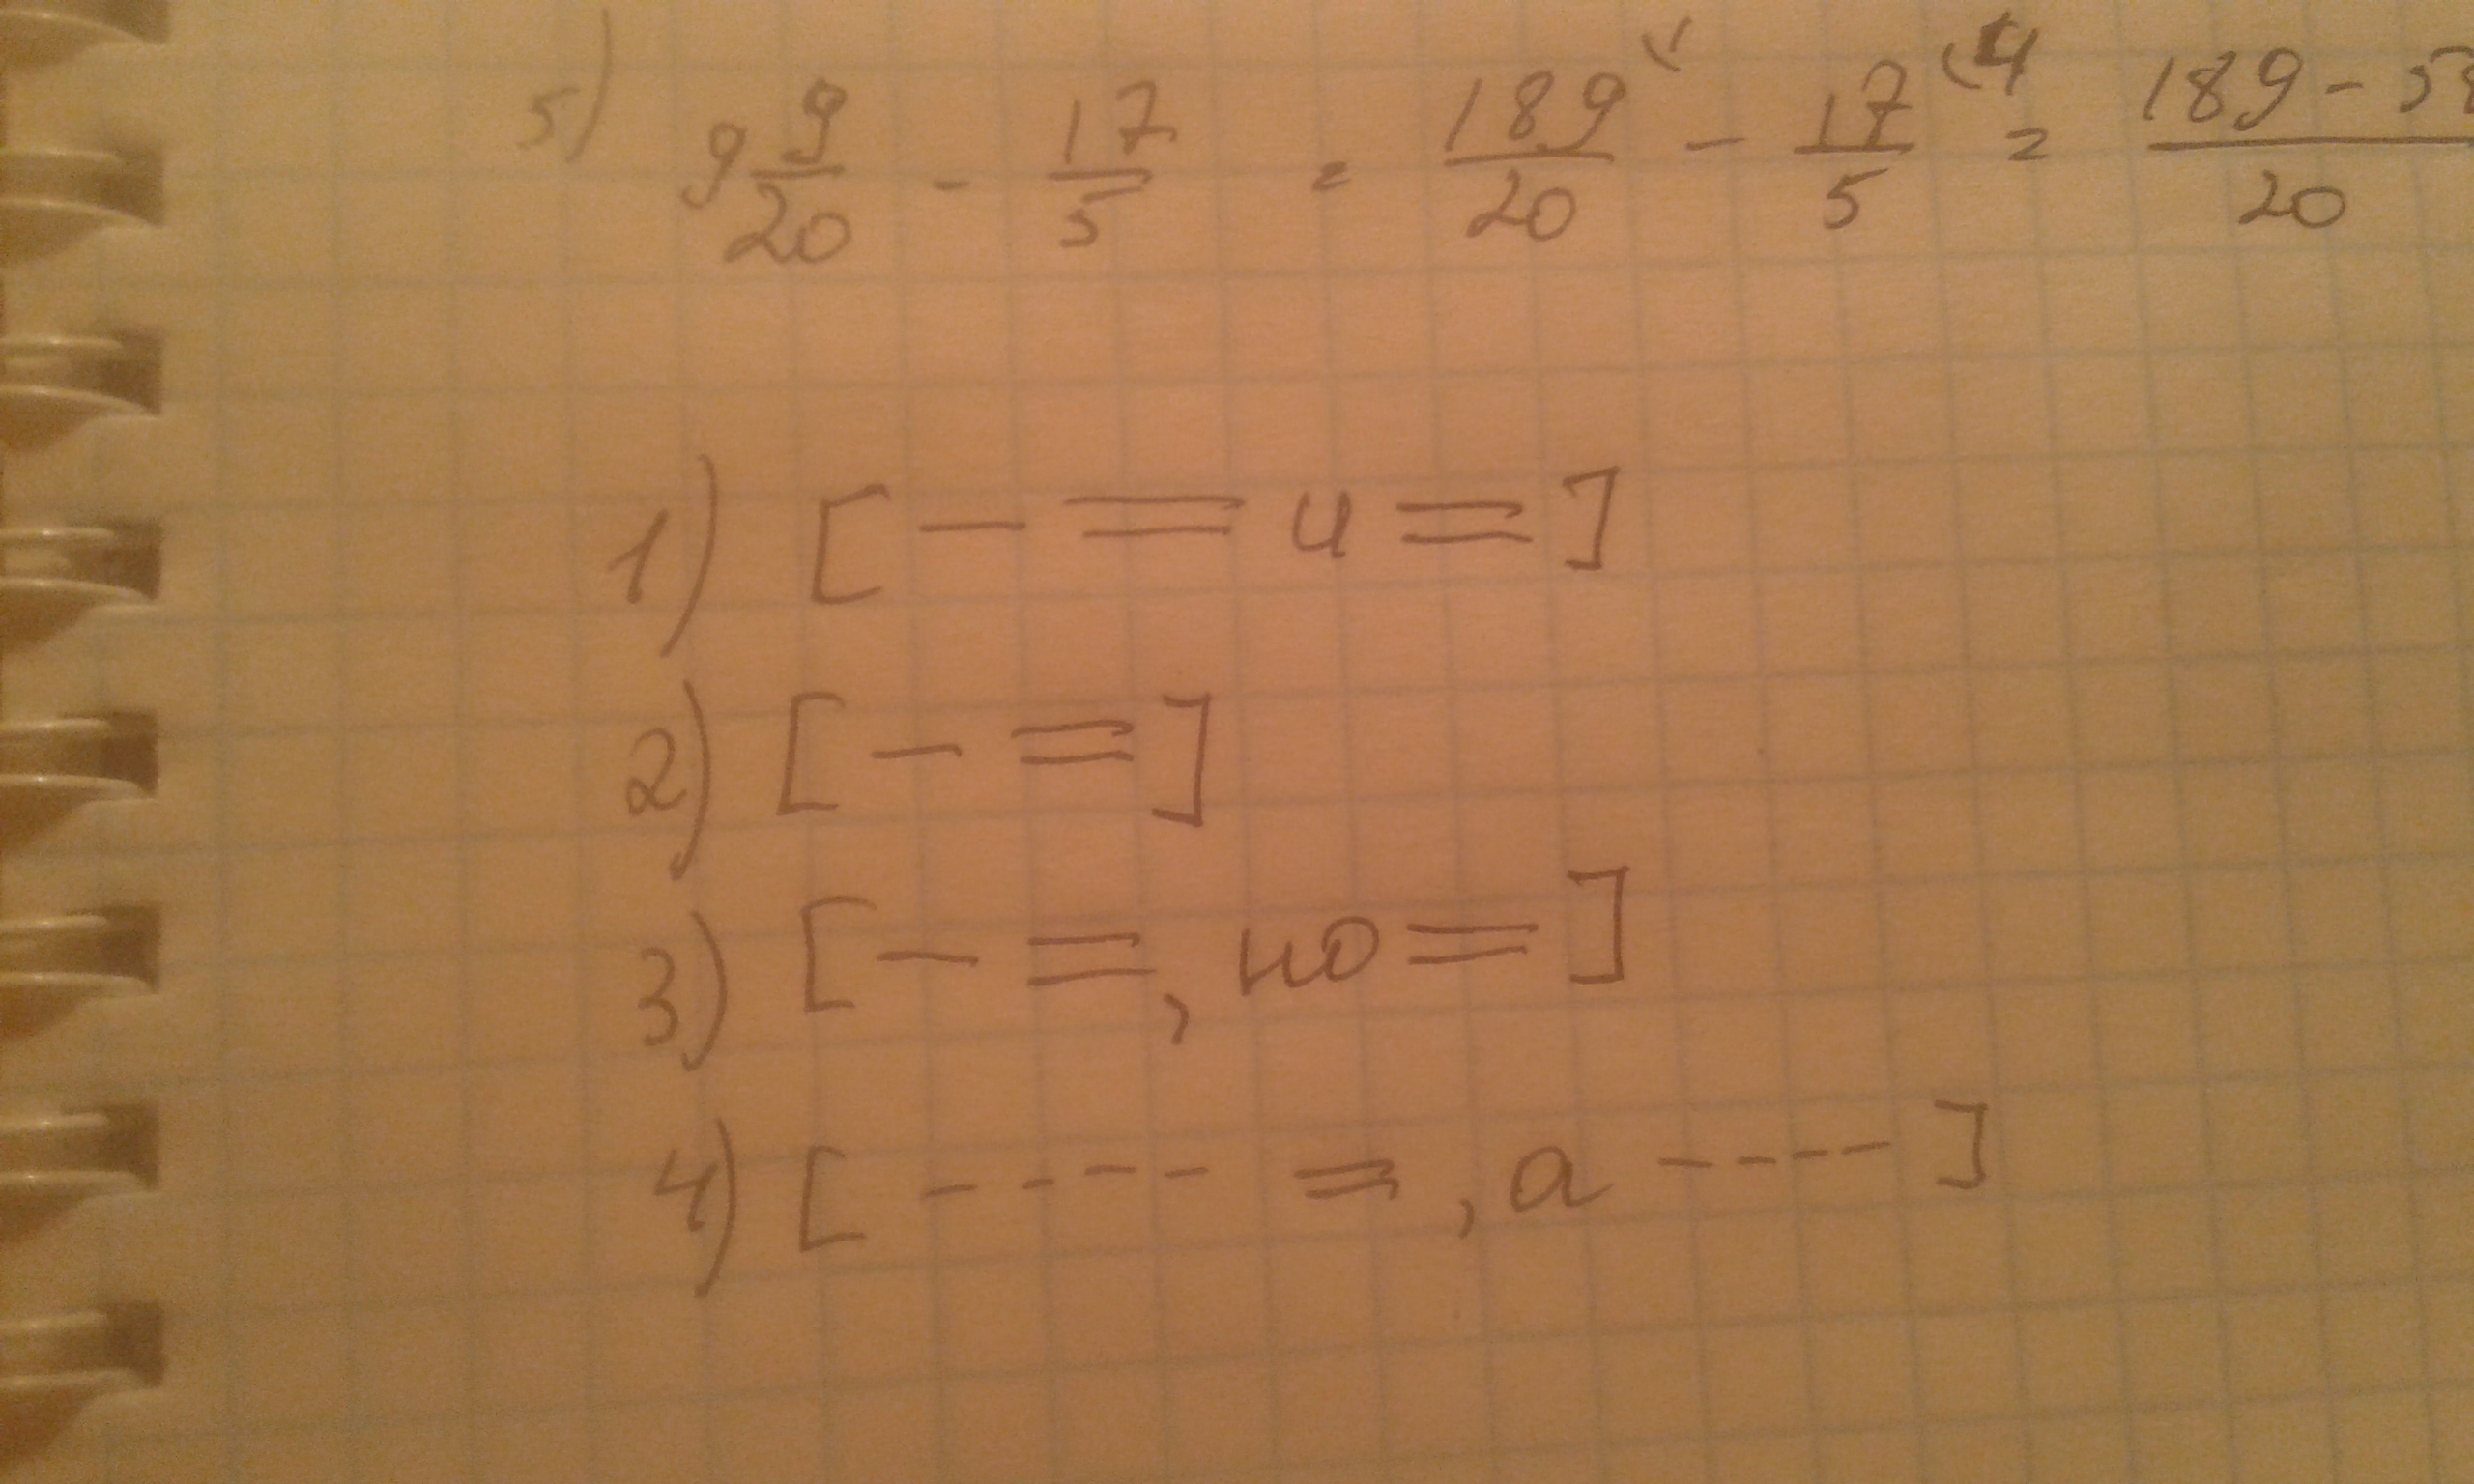 5) 9 9/20 - 17/5 = 189/20 - 17/5 (4 = 189 - 58/20
1) [ — = и = ]
2) [ — = ]
3) [ — = , но = ]
4) [ - - - - = , а - - - - ]